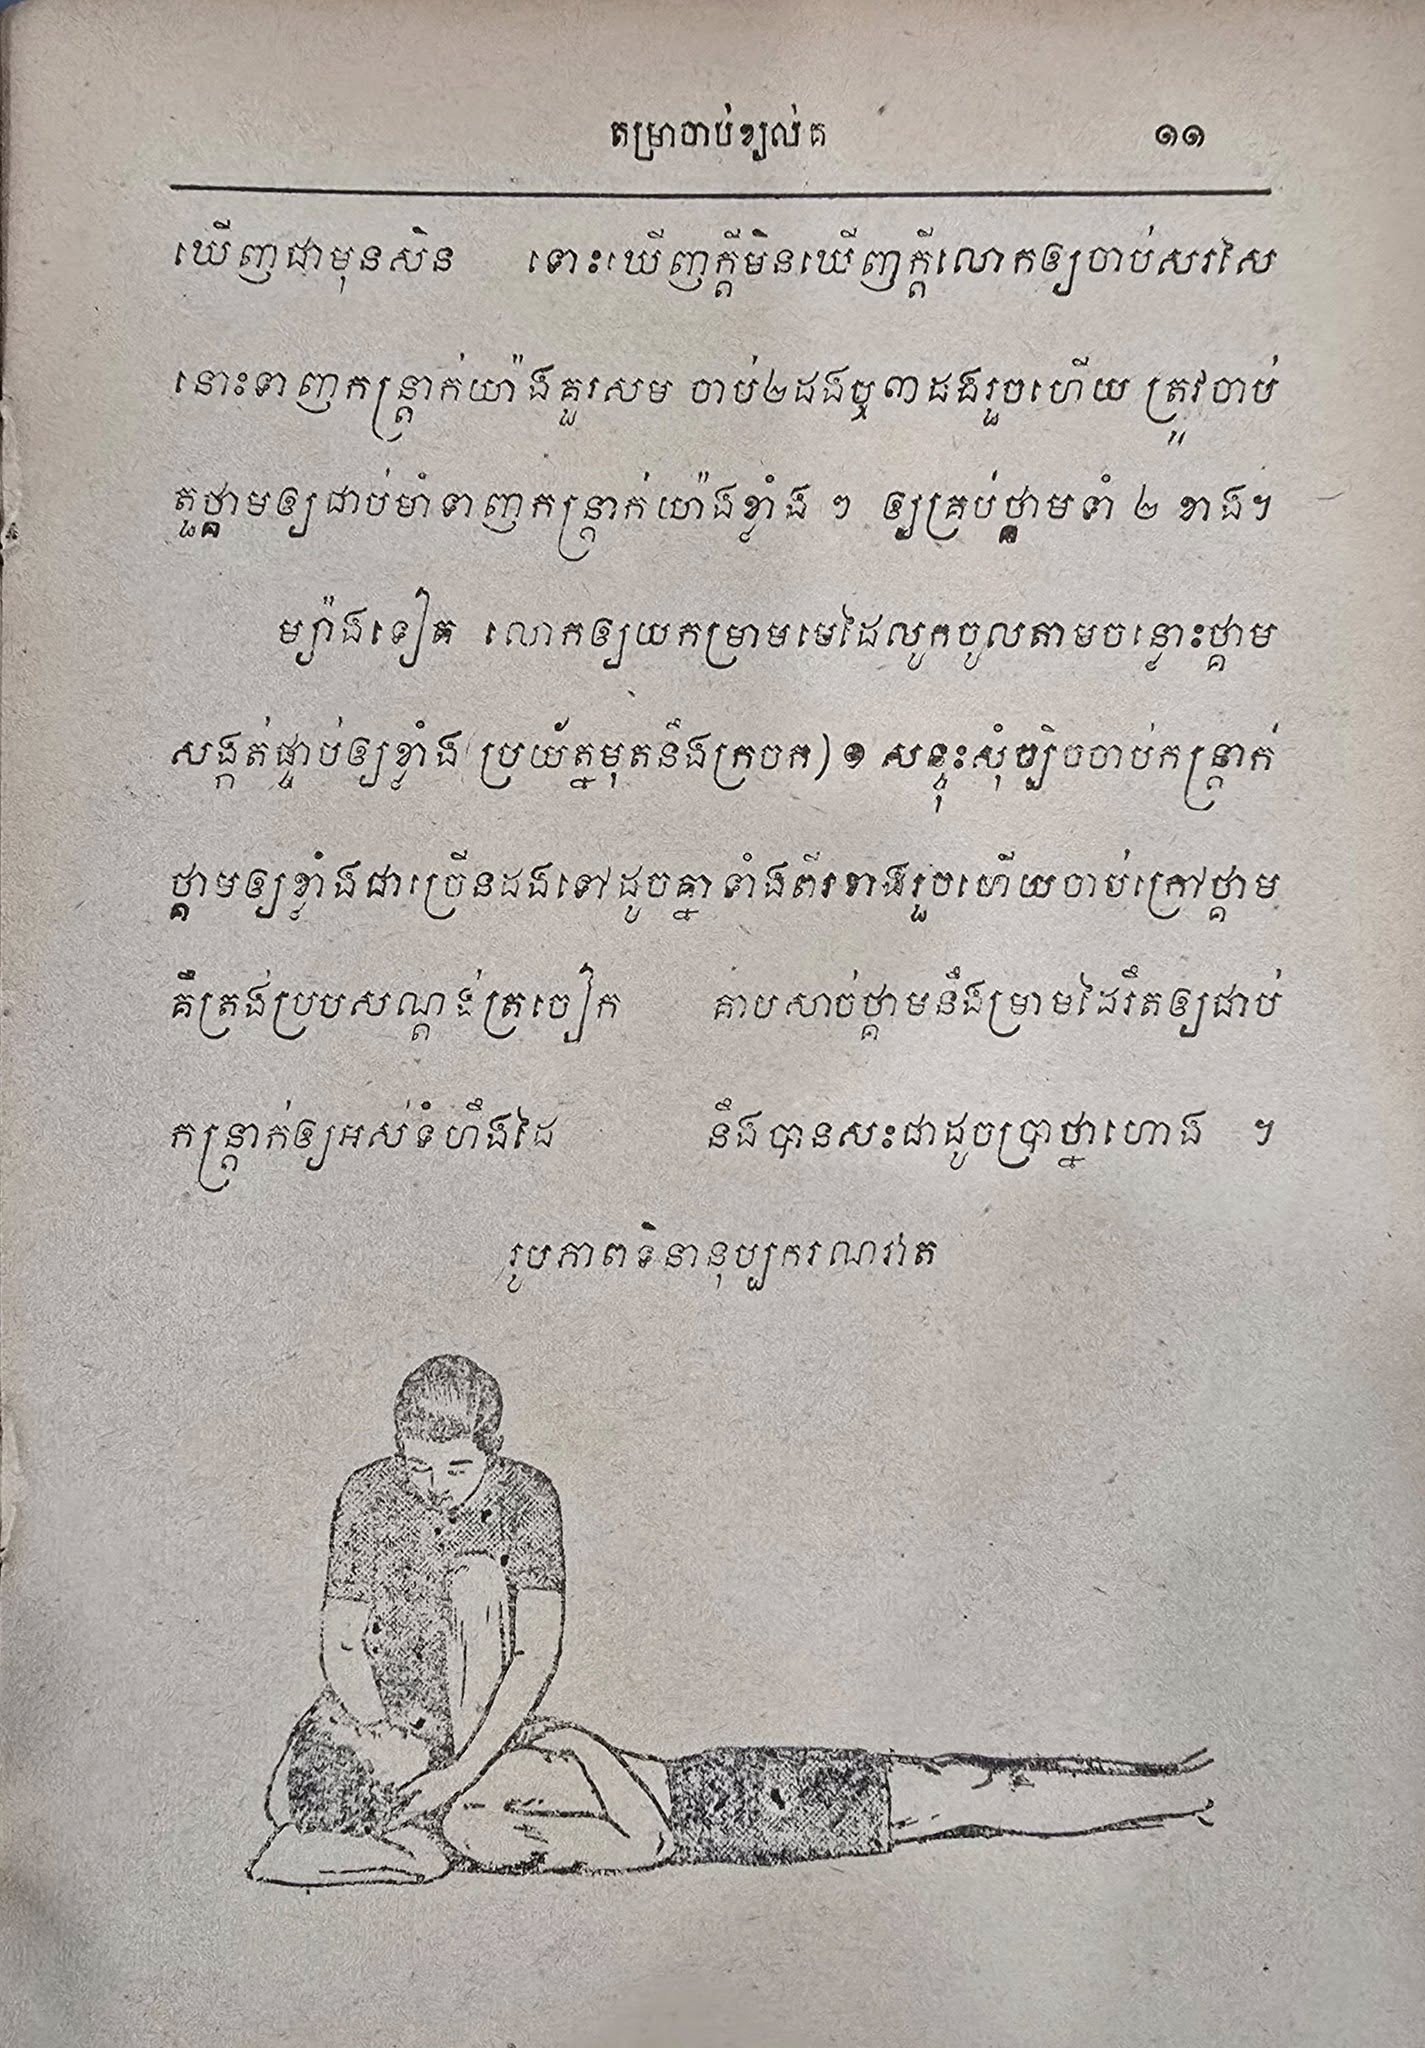 តម្រាចាប់ខ្យល់គ ១១
ឃើញជាមុនសិន ទោះឃើញក្តីមិនឃើញក្តីលោកឲ្យចាប់សរសៃ
នោះទាញកន្ត្រាក់យ៉ាងគួរសម ចាប់២ដងឬ៣ដងរួចហើយ ត្រូវចាប់
តួថ្គាមឲ្យជាប់មាំទាញកន្ត្រាក់យ៉ាងខ្លាំង ៗ ឲ្យគ្រប់ថ្គាមទាំ ២ ខាង។
ម្យ៉ាងទៀត លោកឲ្យយកម្រាមមេដៃលូកចូលតាមចន្លោះថ្គាម
សង្កត់ផ្ទាប់ឲ្យខ្លាំង (ប្រយ័ត្នមុតនឹងក្រចក) ១ សន្ទុះសុំច្បិចចាប់កន្ត្រាក់
ថ្គាមឲ្យខ្លាំងជាច្រើនដងទៅដូចគ្នាទាំងពីរខាងរួចហើយចាប់ក្រៅថ្គាម
គឺត្រង់ប្របសណ្តង់ត្រចៀក គាបសាច់ថ្គាមនឹងម្រាមដៃរឹតឲ្យជាប់
កន្ត្រាក់ឲ្យអស់ទំហឹងដៃ នឹងបានសះជាដូចប្រាថ្នាហោង ។
រូបភាពទិនានុប្បករណវាត